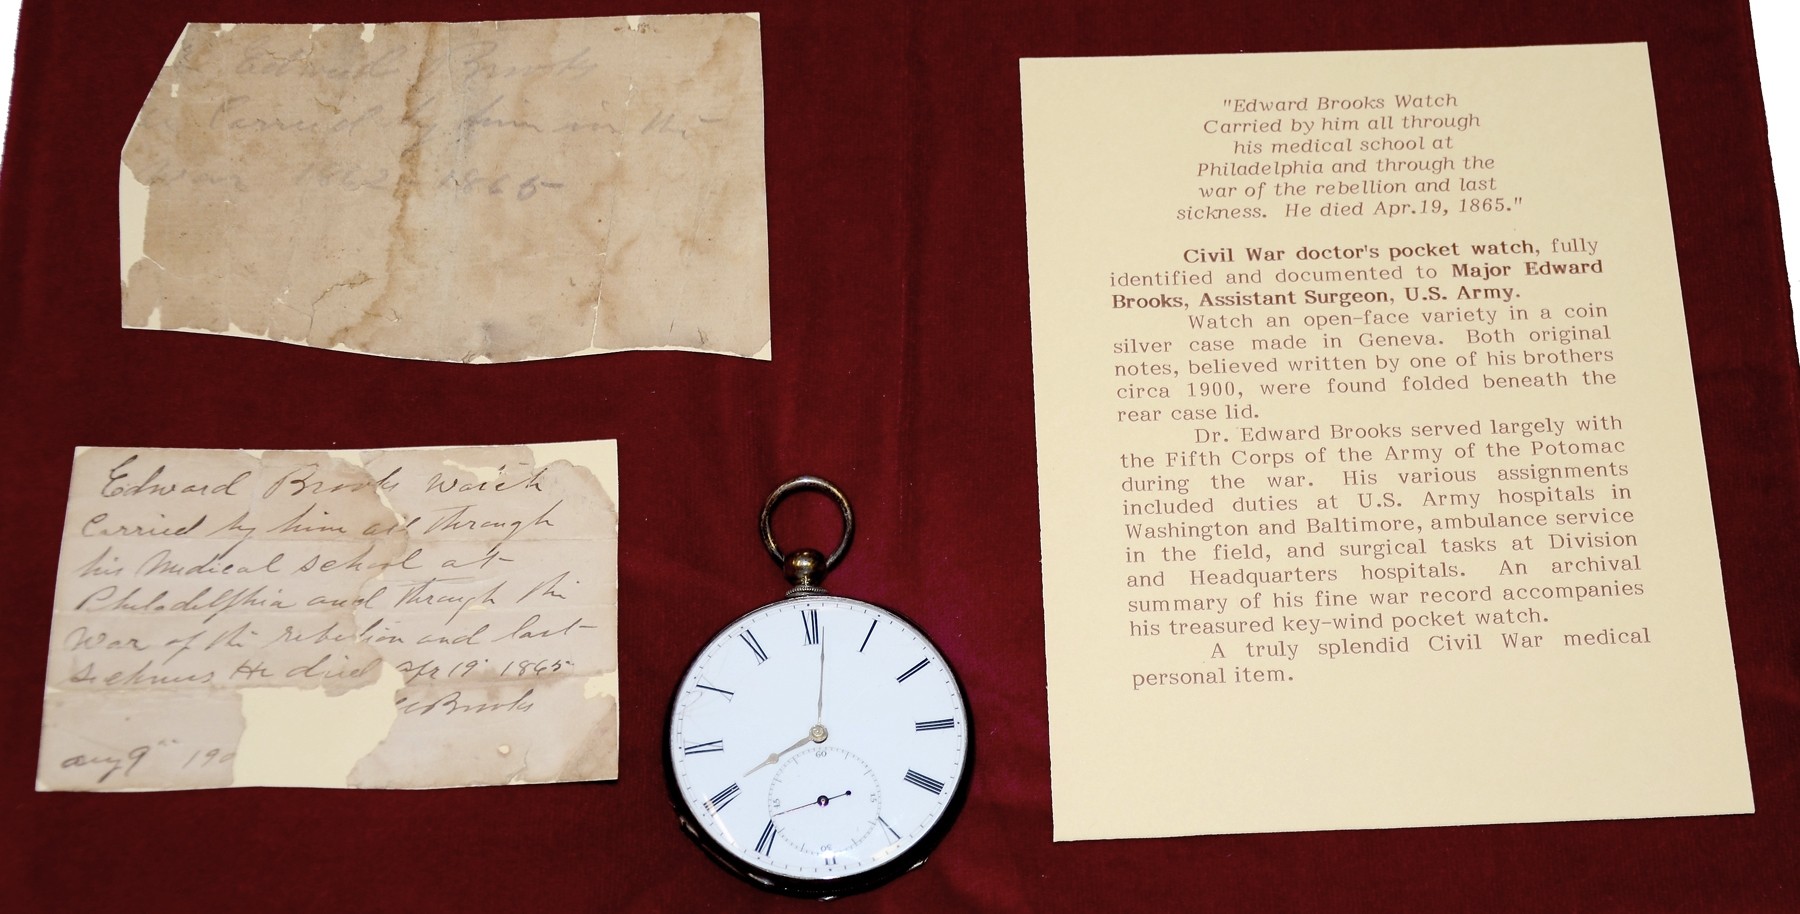 Edward Brooks
Carried by him in the
War 1862-1865
Edward Brooks Watch
Carried by him all through
his Medical School at
Philadelphia and through the
War of the rebellion and last
sickness He died Apr 19 1865
Brooks
Aug 9th 190
XII
I
II
III
IIII
V
VI
VII
VIII
IX
X
XI
60
15
30
45
"Edward Brooks Watch
Carried by him all through
his medical school at
Philadelphia and through the
war of the rebellion and last
sickness. He died Apr.19, 1865."
Civil War doctor's pocket watch, fully
identified and documented to Major Edward
Brooks, Assistant Surgeon, U.S. Army.
Watch an open-face variety in a coin
silver case made in Geneva. Both original
notes, believed written by one of his brothers
circa 1900, were found folded beneath the
rear case lid.
Dr. Edward Brooks served largely with
the Fifth Corps of the Army of the Potomac
during the war. His various assignments
included duties at U.S. Army hospitals in
Washington and Baltimore, ambulance service
in the field, and surgical tasks at Division
and Headquarters hospitals. An archival
summary of his fine war record accompanies
his treasured key-wind pocket watch.
A truly splendid Civil War medical
personal item.